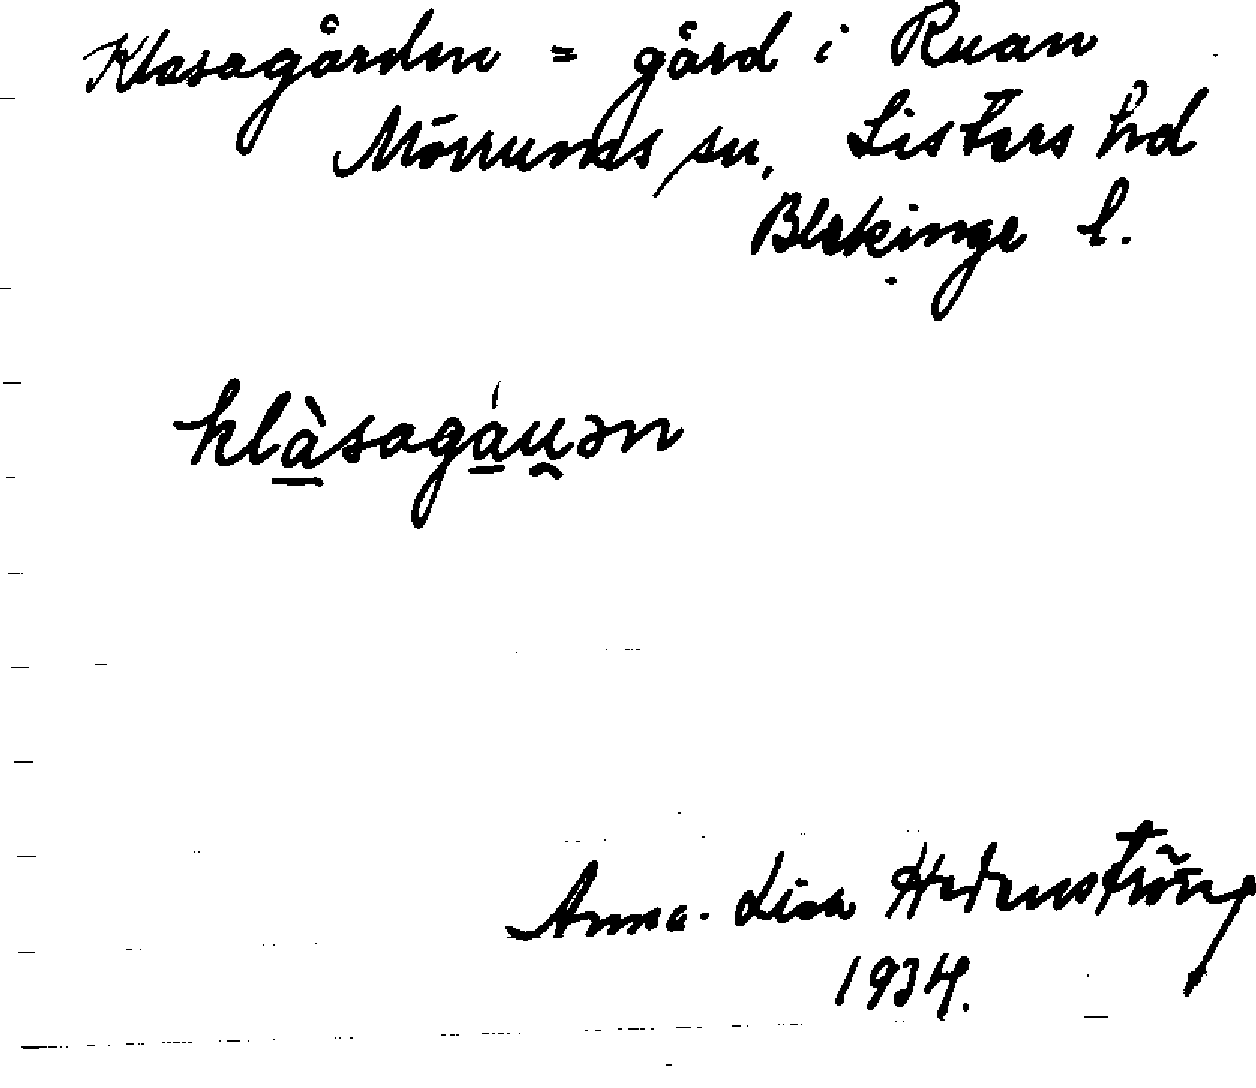 Klasagården = gård i Ruan
Mörrums sn, Listers hd
Blekinge l.
klàsagáu̯ən
Anna-Lisa Hedenström
1934.